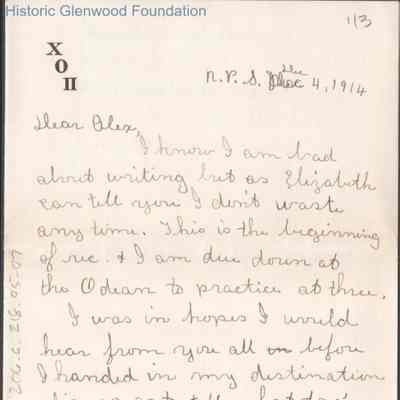 Historic Glenwood Foundation
1/3
X
O
II
N.P.S. Dec 4, 1914
Dear Alex,
I know I am bad
about writing but as Elizabeth
can tell you I don't waste
any time. This is the beginning
of rec. & I am due down at
the Odean to practice at three.
I was in hopes I would
hear from you all before
I handed in my destination
206.C.218.05-07